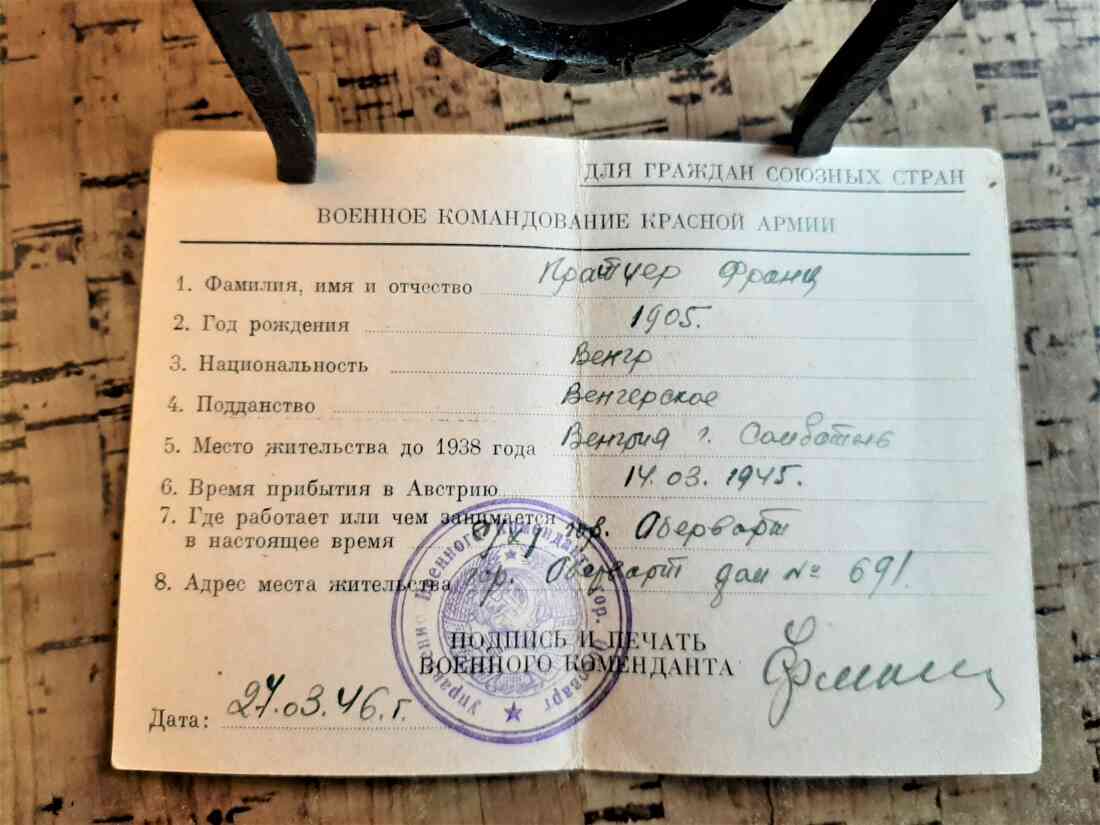 ДЛЯ ГРАЖДАН СОЮЗНЫХ СТРАН
ВОЕННОЕ КОМАНДОВАНИЕ КРАСНОЙ АРМИИ
1. Фамилия, имя и отчество Пратчер Франц
2. Год рождения 1905.
3. Национальность Венгр
4. Подданство Венгерское
5. Место жительства до 1938 года Венгрия г. Сомботель
6. Время прибытия в Австрию 14.03.1945.
7. Где работает или чем занимается
в настоящее время гор. Оберварт
8. Адрес места жительства гор. Оберварт дом № 691.
ПОДПИСЬ И ПЕЧАТЬ
ВОЕННОГО КОМЕНДАНТА
Дата: 27.03.46.г.
Управление Военного Коменданта гор. Оберварт